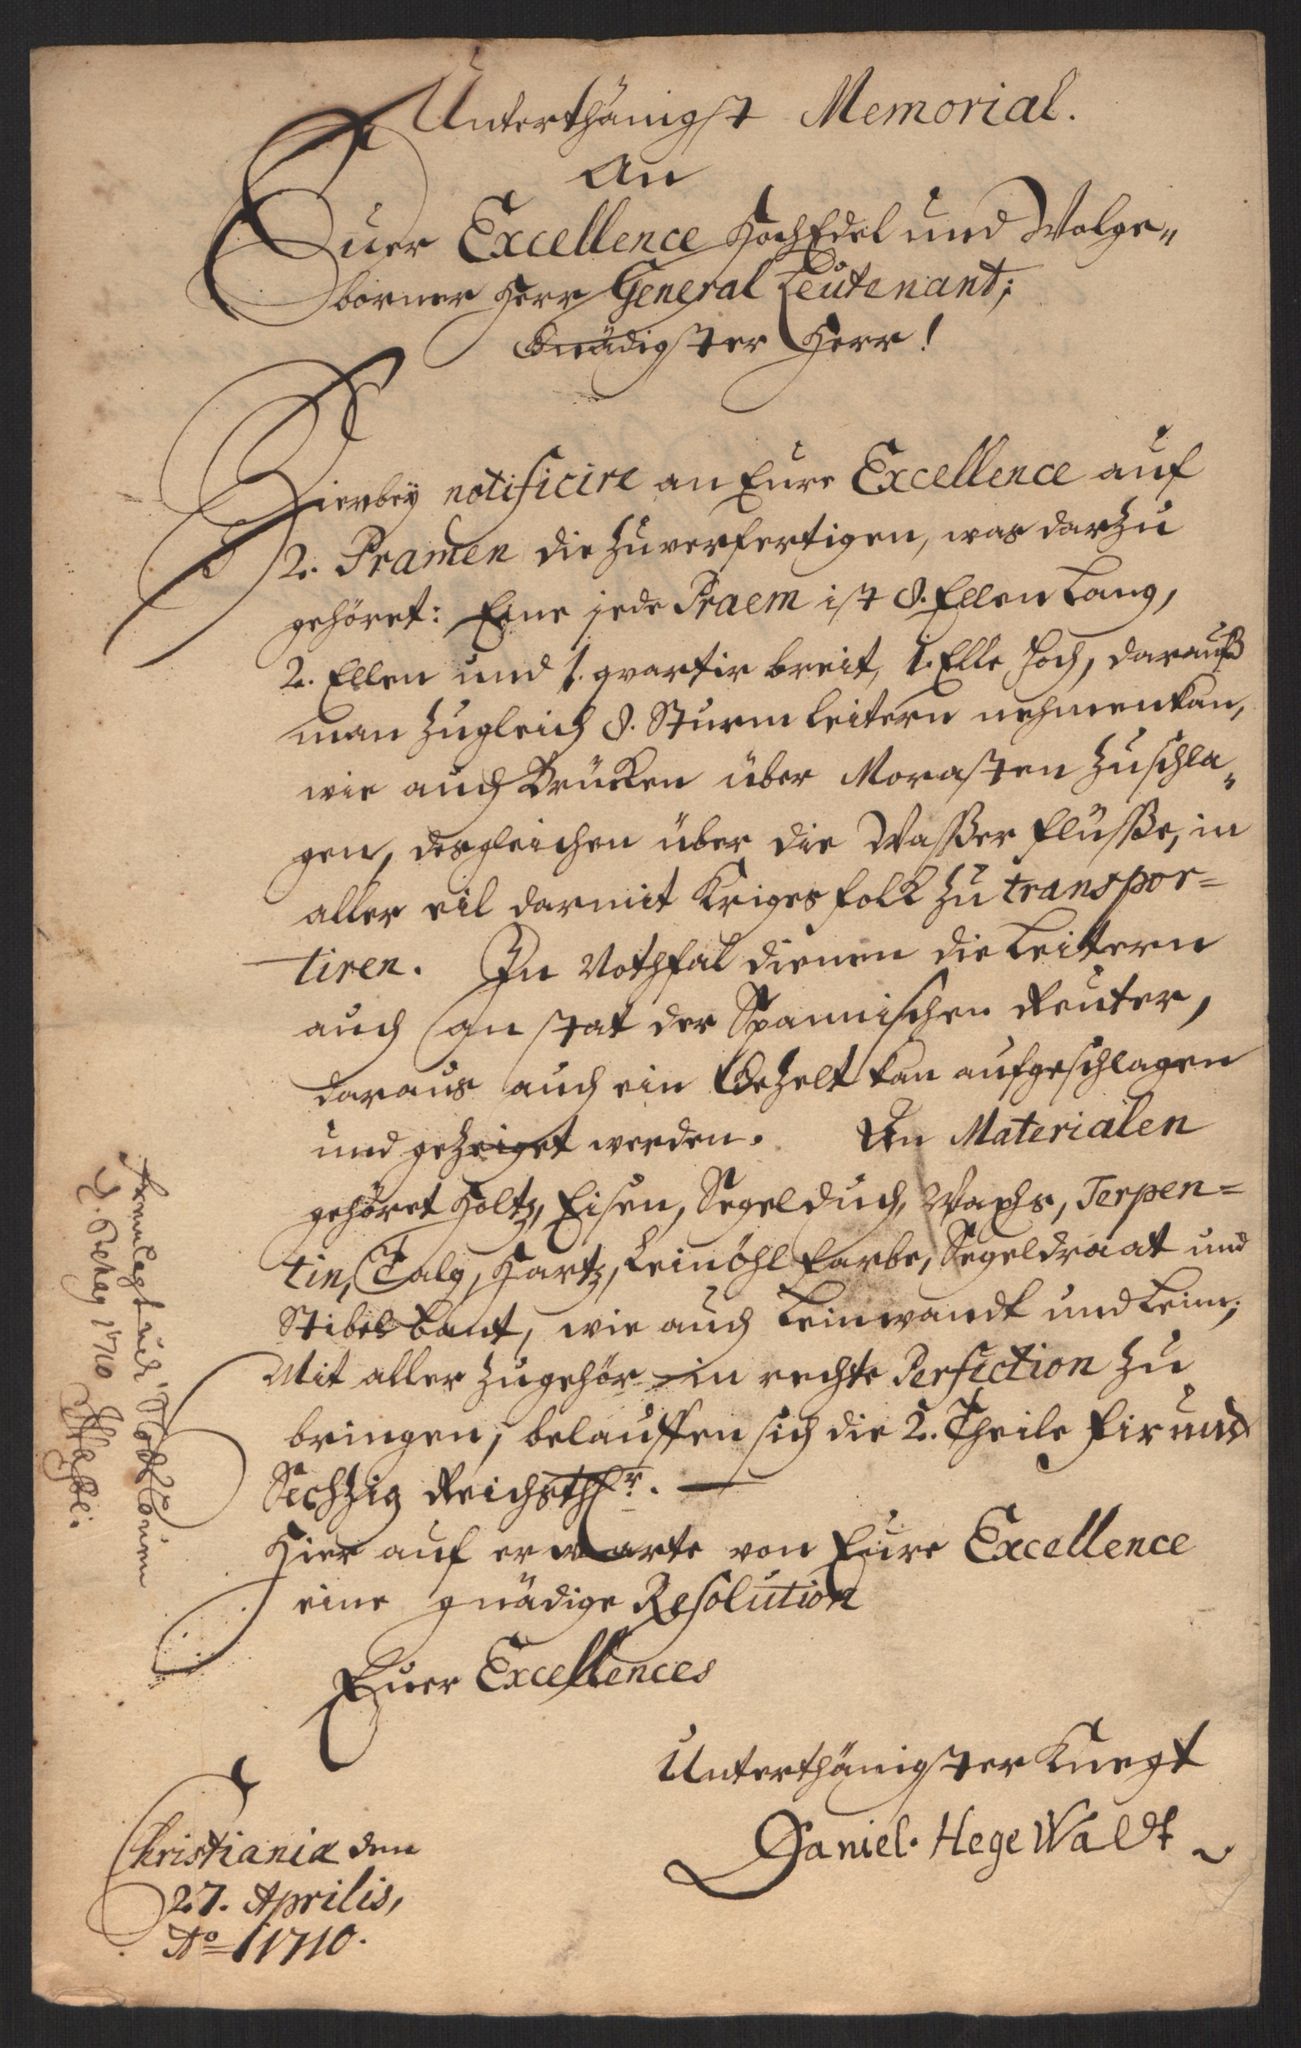 Unterthänigst Memorial.
An
Euer Excellence HochEdel und Wolge„
borner Herr General Leutenant;
Gnädigster Herr!
Hierbey notificire an Eure Excellence auf
2. Pramen die zuverfertigen, was darzu
gehöret: Eine jede Praem ist 8. Ellen Lang,
2. Ellen und 1. qvartir breit, 1. Elle hoch, darauß
man zugleich 8. Sturm leitern nehmen kan,
wie auch Brücken über Morasten zuschla„
gen, desgleichen über die Waßer flüße, in
aller eil darmit Kriges folk zu transpor=
tiren. In Nothfal dienen die Leittern
auch an stat der Spannischen Reuter,
daraus auch ein Gezelt kan aufgeschlagen
und gezeiget werden. An Materialen
gehöret Holtz, Eisen, Segelduch, Wachs, Terpen=
tin, Talg, Hartz, Leinöhl farbe, Segeldraat und
Stibel bant, wie auch Leinwandt und Leim;
Mit aller zugehör in rechte Perfiction zu
bringen, belauffen sich die 2. Theile fir und
Sechzig Reichsthr.
Hier auf erwarte von Eure Excellence
eine gnädige Resolution
Euer Excellences
Unterthänigster Knegt
Daniel. Hege Waldt
Christiania den
27. Aprilis,
Ao 1710.
fremlagt udi
1710